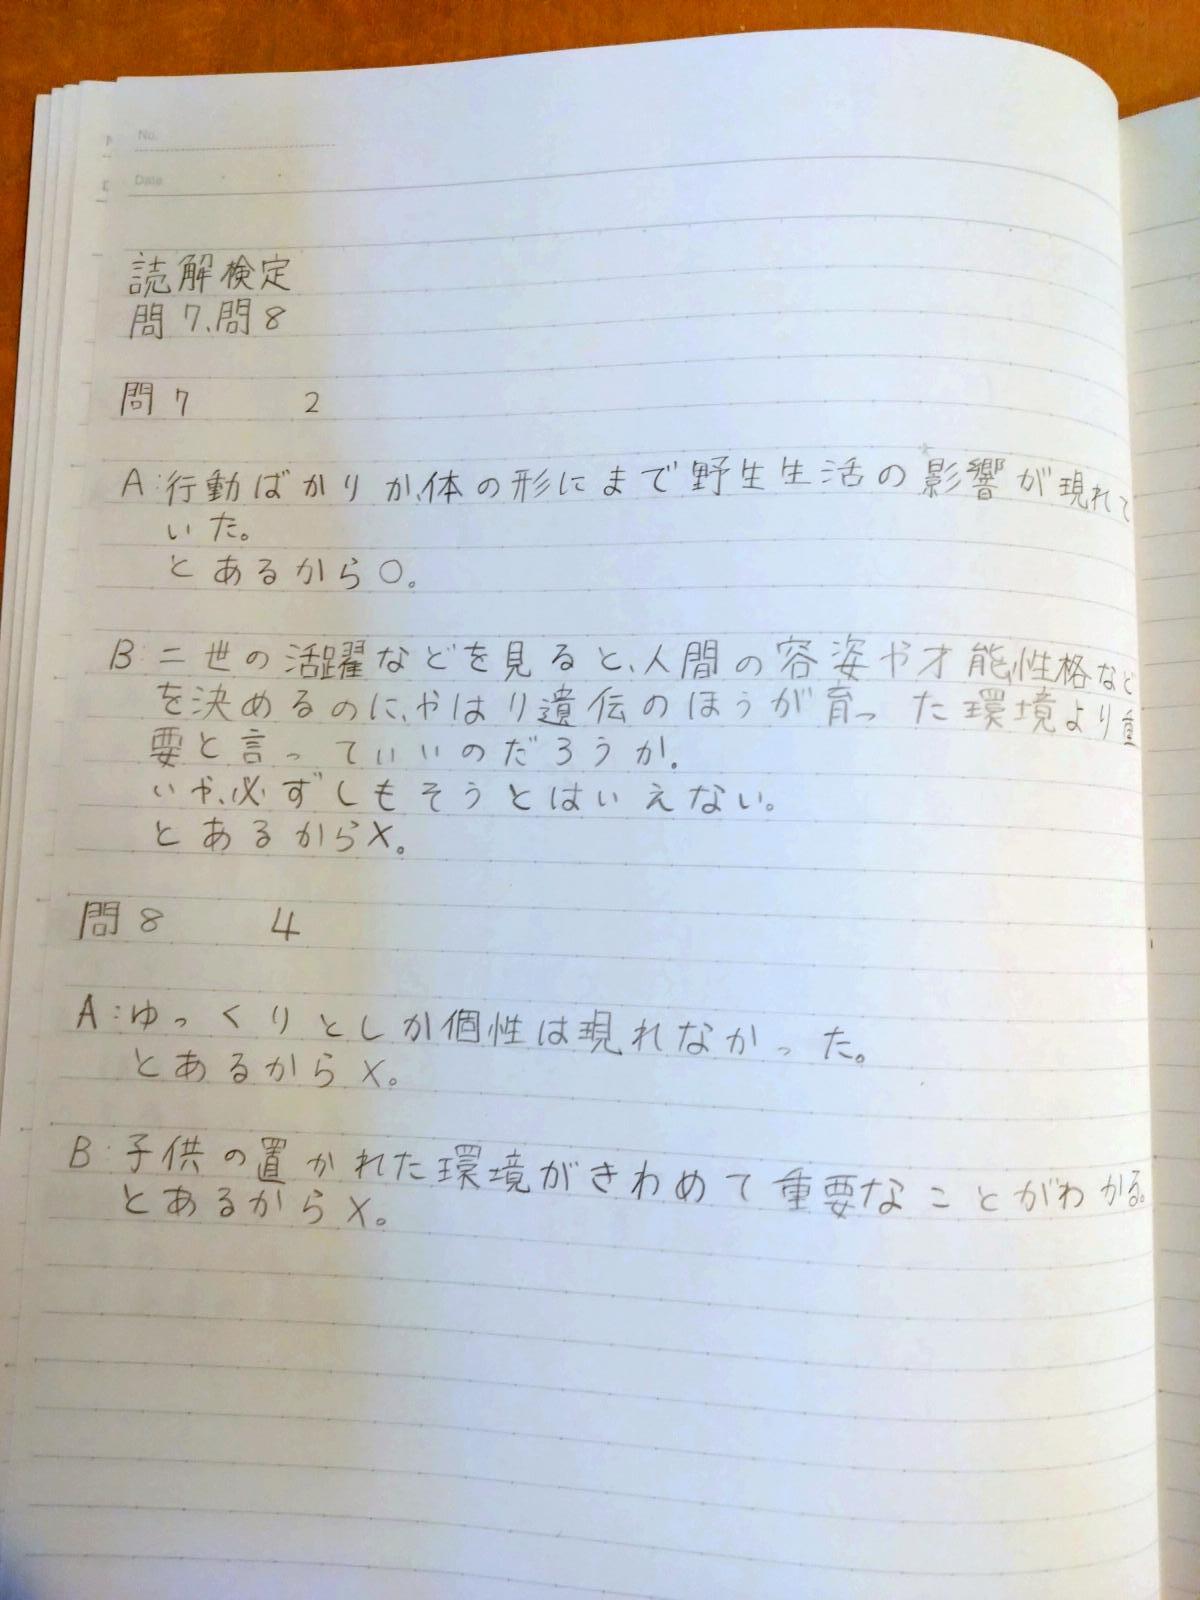 No.
Date
読解検定
問7、問8
問7 2
A:行動ばかりか、体の形にまで野生生活の影響が現れて
いた。
とあるから○。
B:二世の活躍などを見ると、人間の容姿や才能、性格など
を決めるのに、やはり遺伝のほうが育った環境より重
要と言っていいのだろうか。
いや、必ずしもそうとはいえない。
とあるから×。
問8 4
A:ゆっくりとしか個性は現れなかった。
とあるから×。
B:子供の置かれた環境がきわめて重要なことがわかる。
とあるから×。